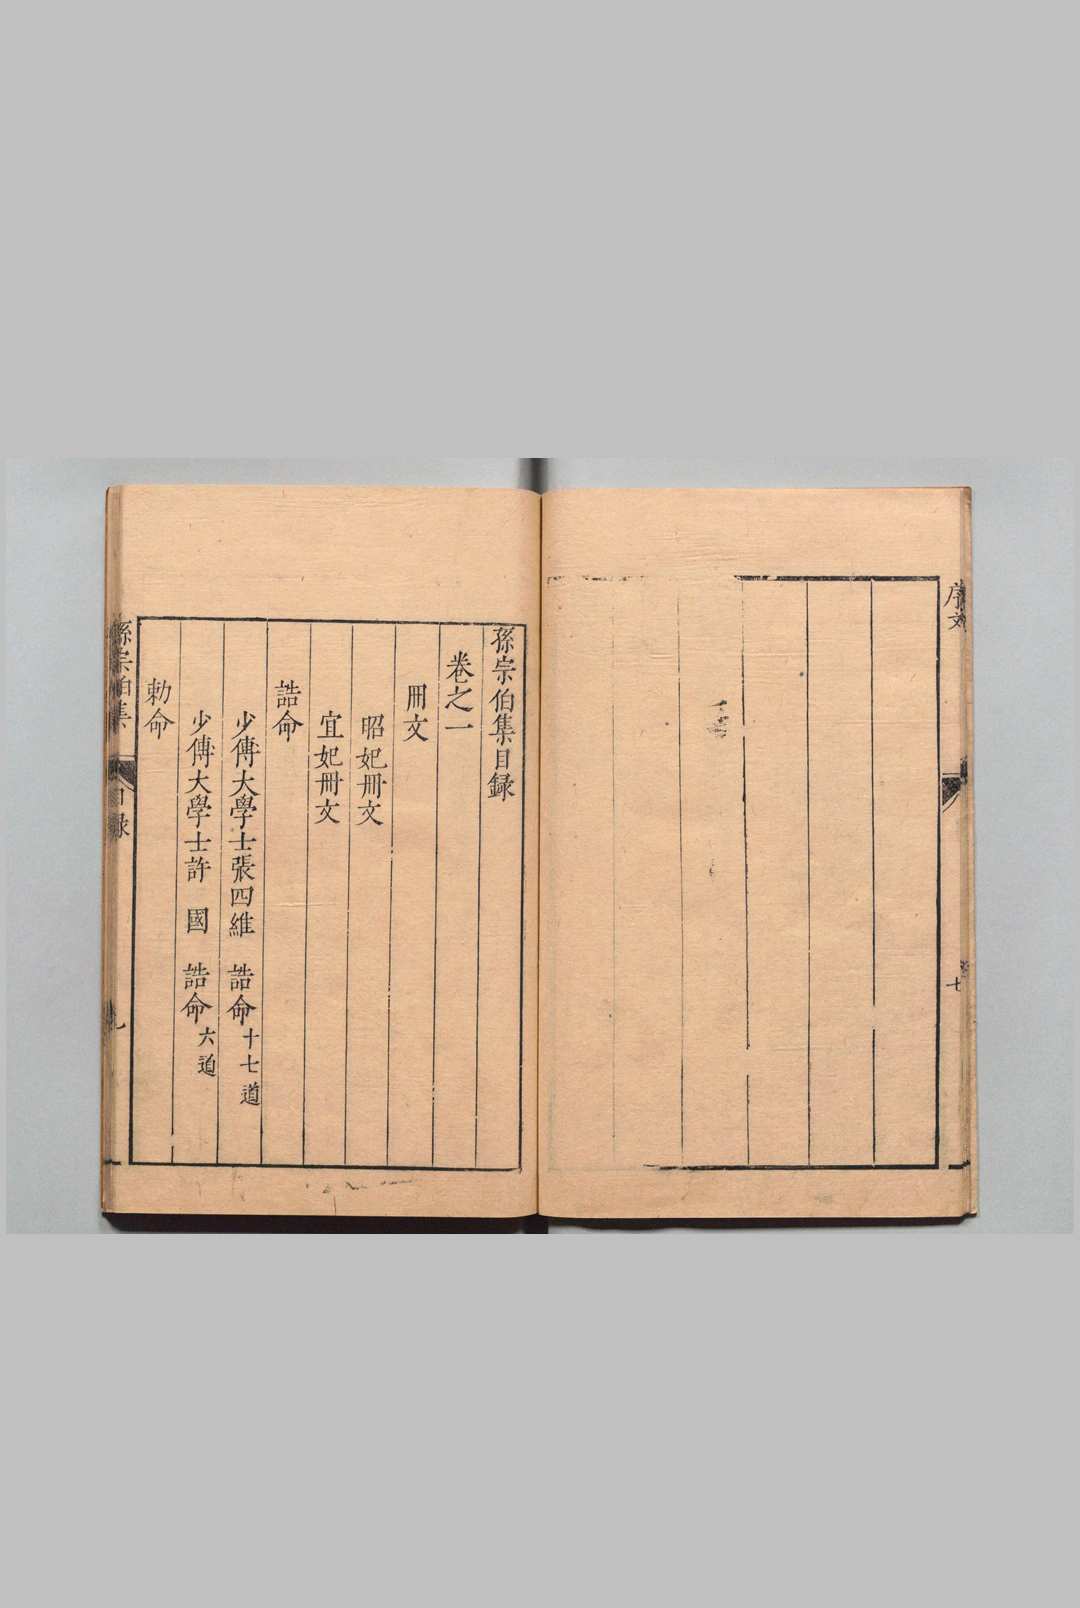 序文
七
孫宗伯集目録
卷之一
冊文
昭妃冊文
宜妃冊文
誥命
少傅大學士張四維　誥命十七道
少傅大學士許　國　誥命六道
勑命
孫宗伯集
目録